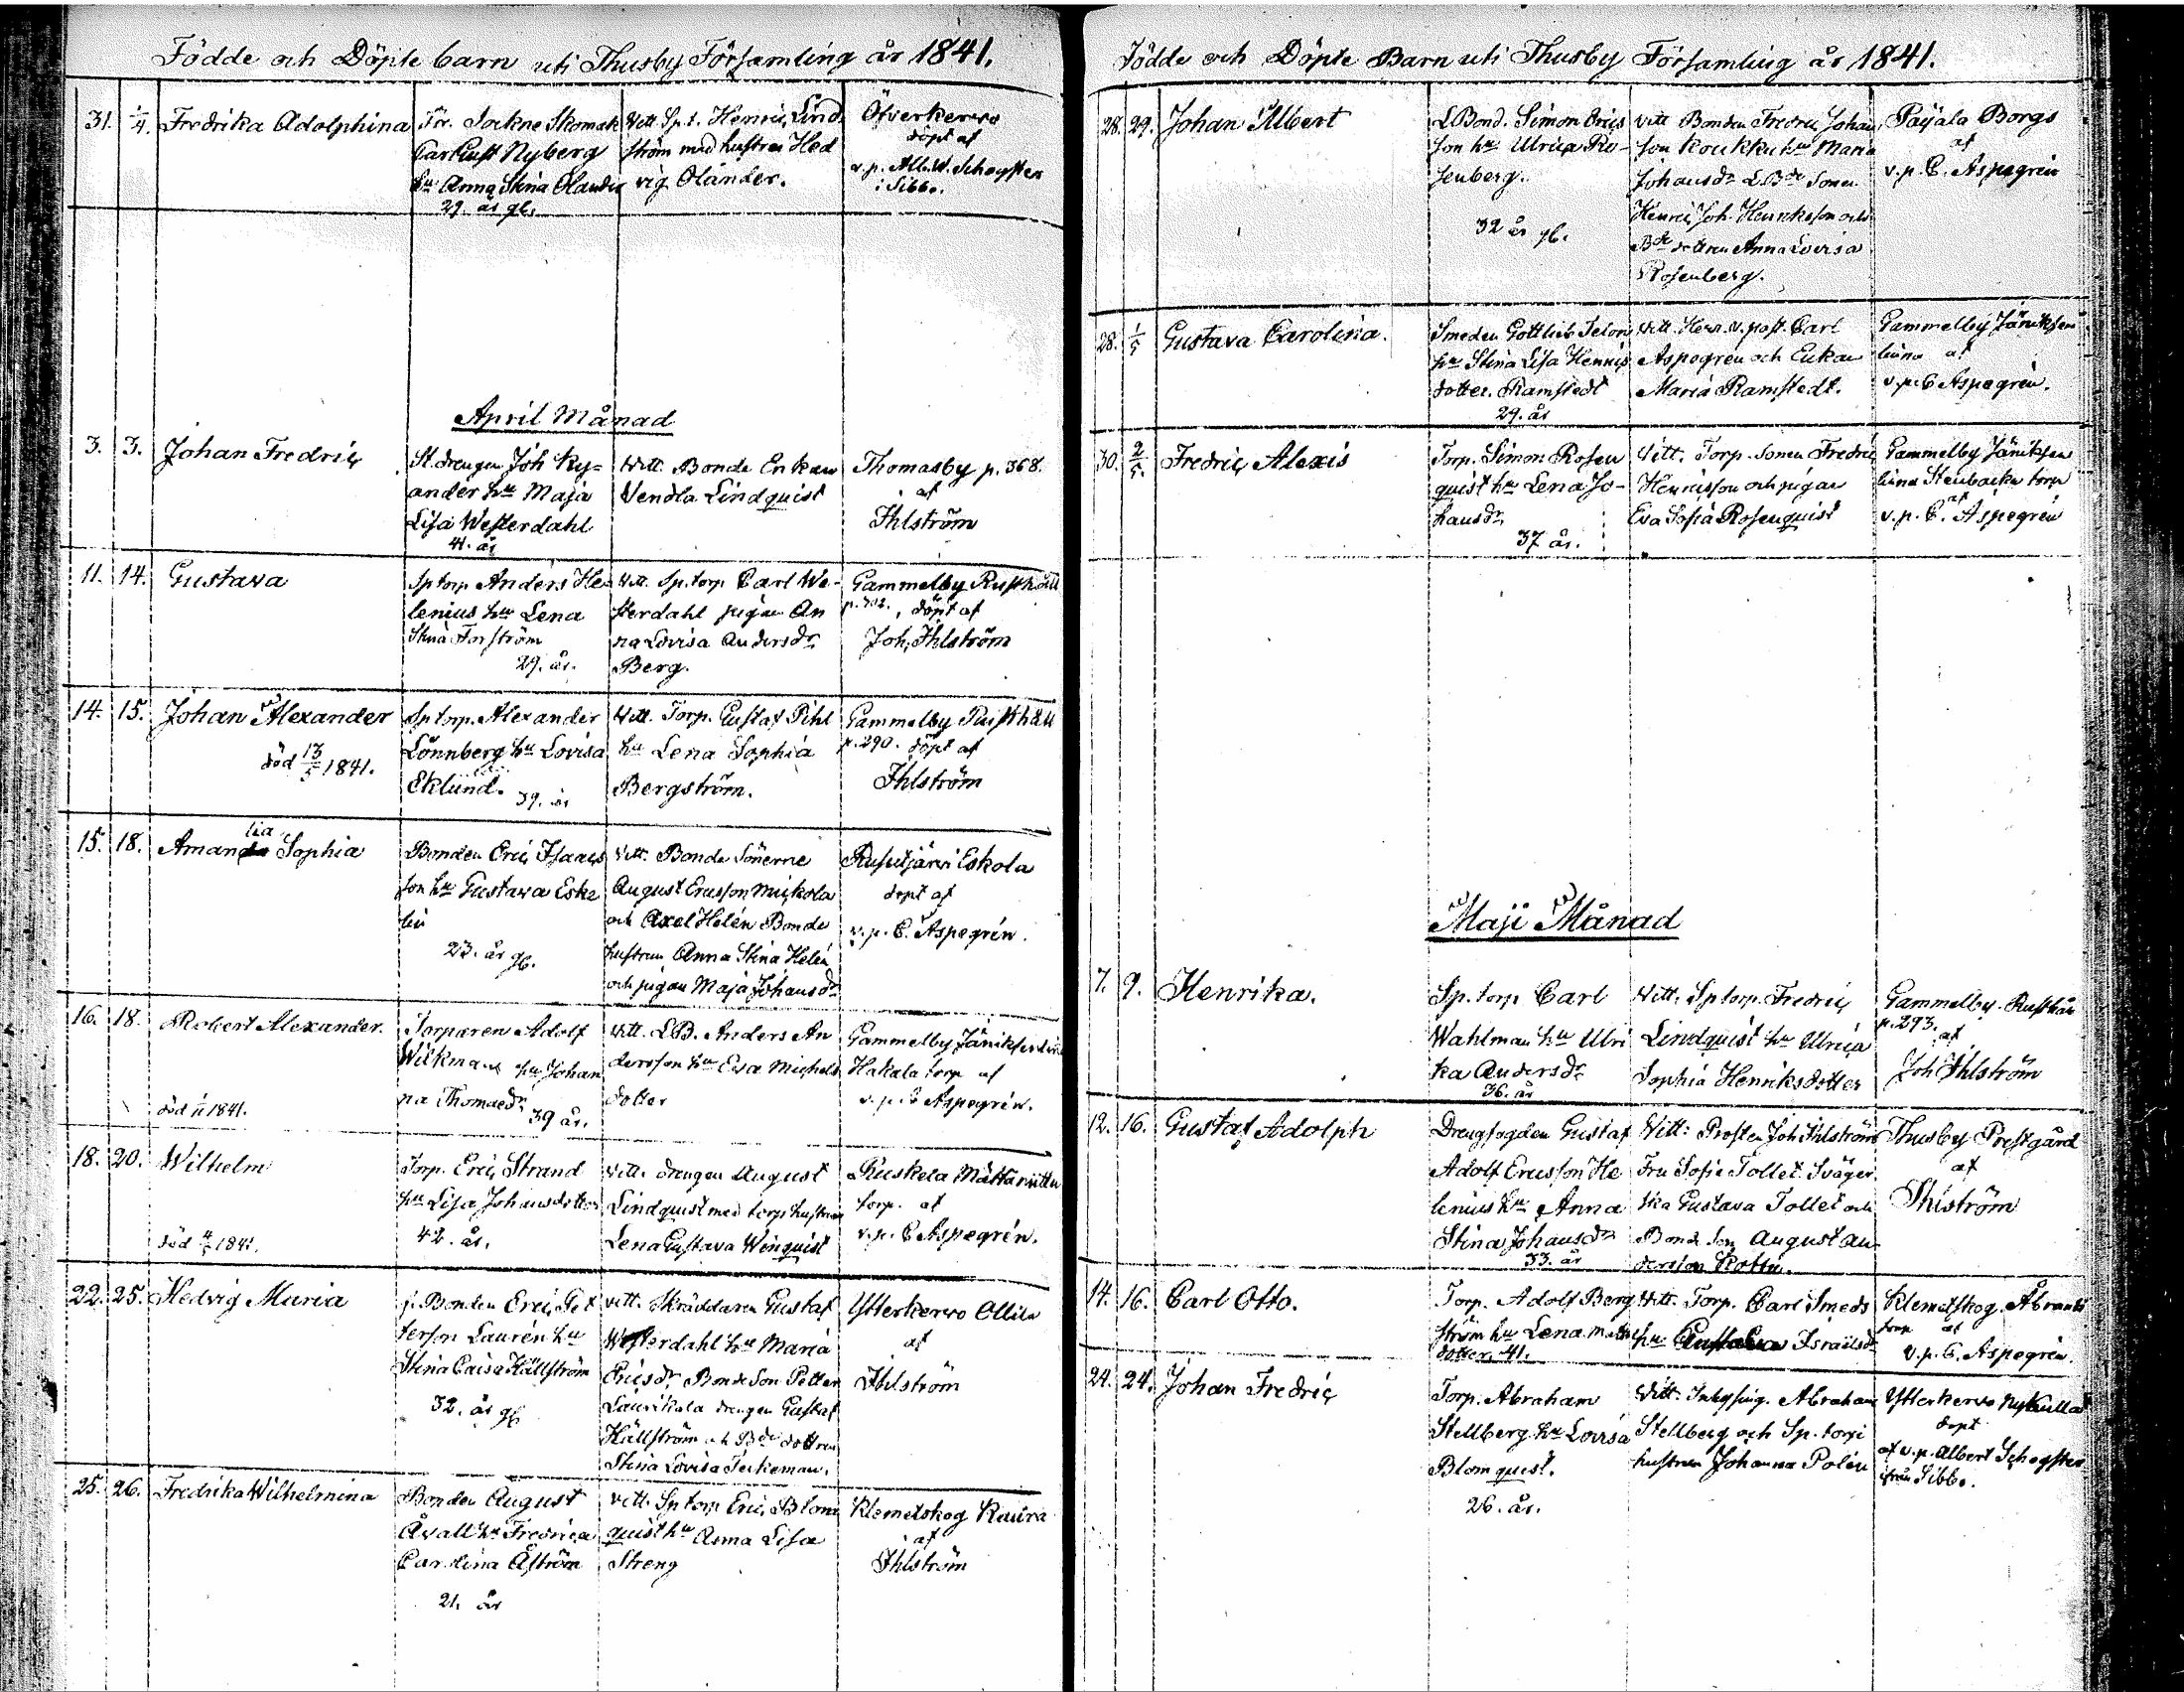 Födde och Döpte barn uti Thusby Församling år 1841.
31. 1/4. Fredrika Adolphina
Fr. Sockne Skomak
Carl Gust Nyberg
hu Anna Stina Olander
29. år gl.
Vitt. Sp.t. Henric Lind
ström med hustru Hed
vig Olander.
Öfverkervo
döpt af
v.p. Alb. W. Schogster
i Sibbo.
April Månad
3. 3. Johan Fredric
St.drengen Joh Ky=
ander hu Maja
Lisa Westerdahl
41. år
Witt. Bonde Enkan
Vendla Lindquist
Thomasby p. 368.
af
Ihlström
11. 14. Gustava
Sp torp Anders He
lenius hu Lena
Stina Forström
29. år.
Vitt. Sp. torp Carl We-
sterdahl pigan An
na Lovisa Andersdr
Berg.
Gammelby Rusthåll
p. 302. döpt af
Joh. Ihlström
14. 15. Johan Alexander
död 13/5 1841.
Sp torp. Alexander
Lönnberg hu Lovisa
Eklund. 39. år
Vitt. Torp. Gustaf Pihl
hu Lena Sophia
Bergström.
Gammelby Rusthåll
p. 290. döpt af
Ihlström
15. 18. Amanda lia Sophia
Bonden Eric Isacs
son hu Gustava Eske
lin
23. år gl.
Vitt. Bonde Sönerne
August Ericsson Mickola
och Axel Helén Bonde
hustrun Anna Stina Helén
och pigan Maja Johansdr
Rusutjärvi Eskola
döpt af
v.p. C. Aspegrén.
16. 18. Robert Alexander.
död 1/11 1841.
Torparen Adolf
Wikman hu Johan
na Thomaedr
39 år.
Vitt. L.B. Anders An
dersson hu Eva Michels
dotter
Gammelby Jäniksenlinna
Hakala torp af
v.p. C Aspegrén.
18. 20. Wilhelm
Torp. Eric Strand
hu Lisa Johansdotter
42. år.
Vitt. drengen August
Lindquist med torp hustrun
Lena Gustava Winquist
Ruskela Mättäniittu
torp. af
v.p. C Aspegrén.
22. 25. Hedvig Maria
f. Bonden Eric Pet
terson Laurén hu
Stina Caisa Källström
32. år gl
Vitt. Skräddaren Gustaf
Westerdahl hu Maria
Ericsdr Bonde Son Petter
Laurikala drengen Gustaf
Källström och Bde dottren
Stina Lovisa Teckeman.
Ytterkervo Ollila
af
Ihlström
25. 26. Fredrika Wilhelmina
Bonden August
Åvall hu Fredrica
Carolina Åström
21. år
Vitt. Sp torp Eric Blom
quist hu Anna Lisa
Streng
Klemetskog Kaura
af
Ihlström
Födde och Döpte Barn uti Thusby Församling år 1841.
28. 29. Johan Albert
L Bond. Simon Erics
son hu Ulrica Ro-
senberg.
32 år gl.
Vitt Bonden Fredric Johan
son Koukku hu Maria
Johansdr L.Bde Sonen
Henric Joh. Henriksson och
Bde dottren Anna Lovisa
Rosenberg.
Päijälä Borgs
af
v.p. C. Aspegrén
28. 1/5 Gustava Carolina.
Smeden Gottlieb Telon
hu Stina Lisa Henrics
dotter. Ramstedt
29. år
Vitt. Herr. v. past. Carl
Aspegrén och Enkan
Maria Ramstedt.
Gammelby Jäniksen
linna af
v.p. C Aspegrén.
30. 2/5. Fredric Alexis
Torp. Simon Rosen
quist hu Lena Jo-
hansdr
37 år.
Vitt. Torp. Sonen Fredric
Henricsson och pigan
Eva Sofia Rosenquist
Gammelby Jäniksen
linna Stenbacka torp
af
v.p. C. Aspegrén
Maji Månad
7. 9. Henrika.
Sp. torp Carl
Wahlman hu Ulri
ka Andersdr
36. år
Vitt. Sp torp. Fredric
Lindquist hu Ulrica
Sophia Henriksdotter
Gammelby. Rusthål
p. 293. af
Joh Ihlström
12. 16. Gustaf Adolph
Drengfogden Gustaf
Adolf Ericsson He
lenius hu Anna
Stina Johansdr
33. år
Vitt: Prosten Joh Ihlström
Fru Sofie Tollet Sväger
ska Gustava Tollet och
Bonde Son August An
dersson Kottu.
Thusby Prestgård
af
Ihlström
14. 16. Carl Otto.
Torp. Adolf Berg
ström hu Lena Matts
dotter. 41.
Vitt. Torp. Carl Smeds
hu Gustava Israelsdr
Klemetskog. Åbrants
torp af
v.p. C. Aspegrén.
24. 24. Johan Fredric
Torp. Abraham
Stellberg hu Lovisa
Blomquist.
26. år.
Vitt. Inhysing. Abraham
Stellberg och Sp. torp
hustrun Johanna Polén
Ytterkervo Nykulla
döpt
af v.p. Albert Schogster
ifrån Sibbo.